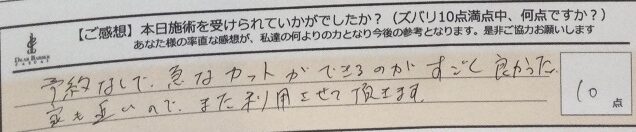 【ご感想】本日施術を受けられていかがでしたか?(ズバリ10点満点中、何点ですか?)
あなた様の率直な感想が、私達の何よりの力となり今後の参考となります。是非ご協力お願いします
予約なしで、急なカットができるのがすごく良かった。
家も近いので、また利用させて頂きます。
10点